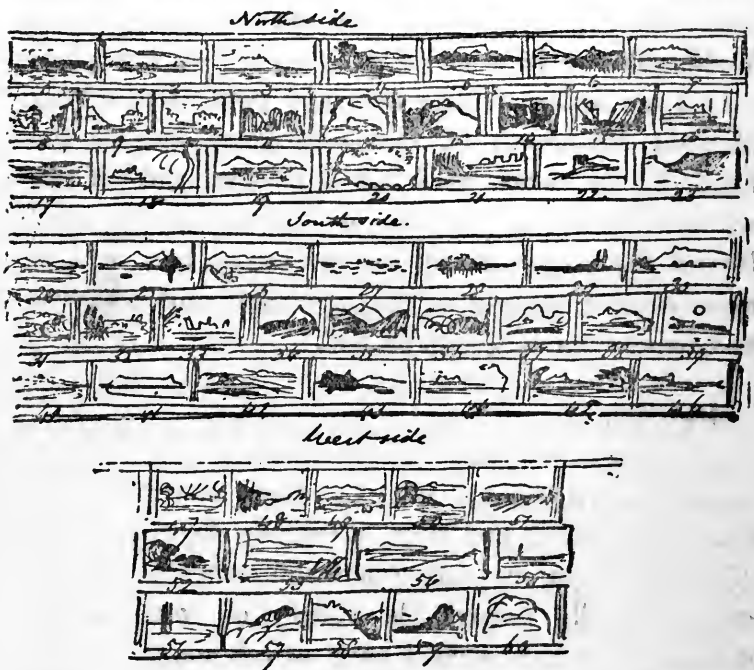 North side
1 2 3 4 5 6 7
8 9 10 11 12 13 14 15 16
17 18 19 20 21 22 23
South side.
27 28 29 30
31 32 33 34 35 36 37 38 39
40 41 42 43 44 45 46
West side
47 48 49 50 51
52 53 54 55
56 57 58 59 60